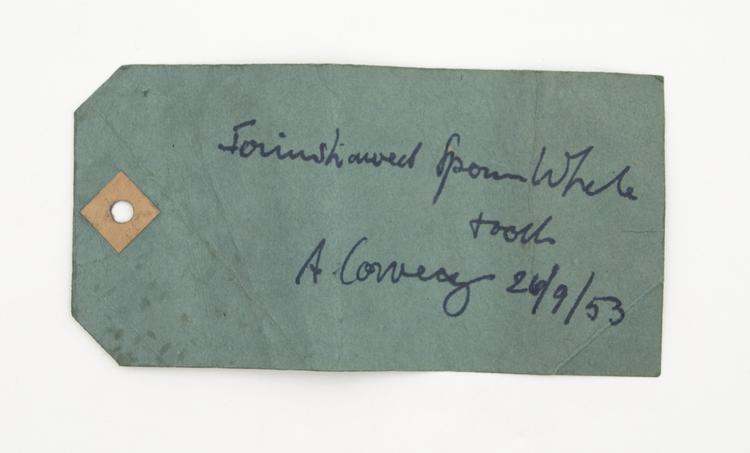 Scrimshawed Sperm Whale
tooth
A. Conway 26/9/53